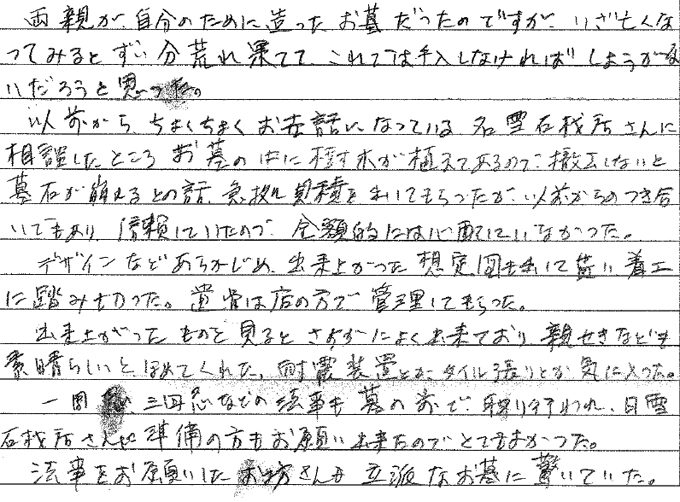 両親が、自分のために造ったお墓だったのですが、いざ亡くな
ってみるとずい分荒れ果てて、これでは手入しなければしようがな
いだろうと思った。
以前から、ちょくちょくお世話になっている名雪石材店さんに
相談したところ お墓の中に樹木が植えてあるので、撤去しないと
墓石が崩れるとの話、急拠見積を出してもらったが、以前からのつき合
いでもあり 信頼していたので、金額的には心配していなかった。
デザインなどあらかじめ、出来上がった想定図を出して貰い着工
に踏み切った。遺骨は店の方で管理してもらった。
出来上がったものを見ると さすがによく出来ており 親せきなども
素晴らしいとほめてくれた。耐震装置とか、タイル張りとか気に入った。
一周 三回忌などの法事も墓の前で、取り行われ、
石材店さんに準備の方もお願い出来たのでとてもよかった。
法事をお願いしたお坊さんも立派なお墓に驚いていた。